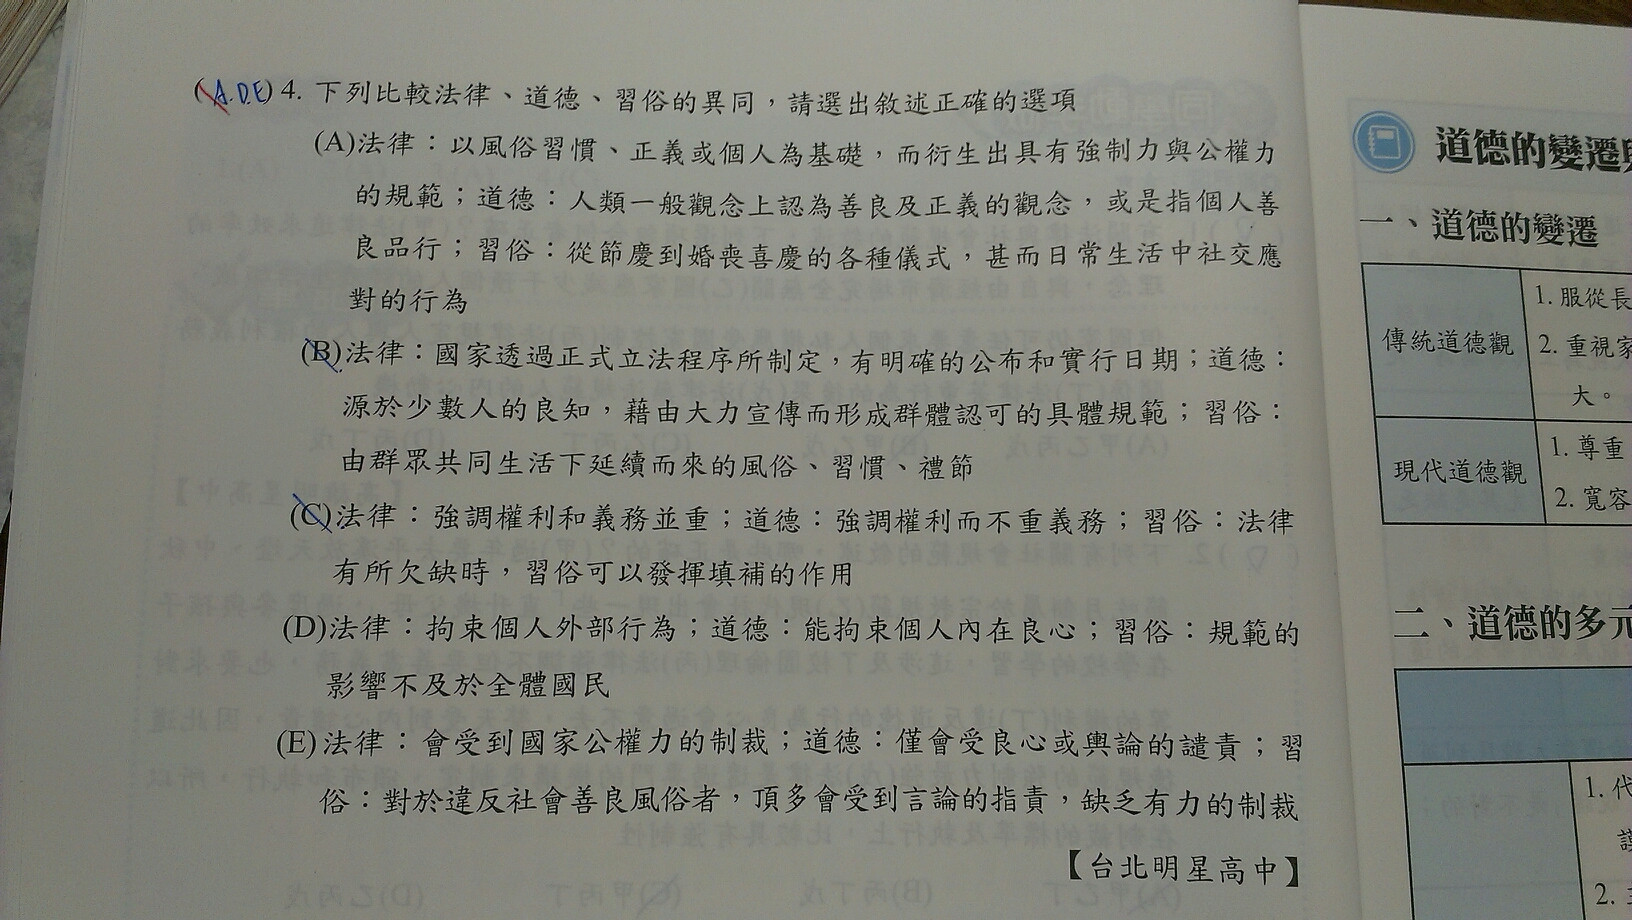 (A.D.E) 4. 下列比較法律、道德、習俗的異同，請選出敘述正確的選項
(A)法律：以風俗習慣、正義或個人為基礎，而衍生出具有強制力與公權力
的規範；道德：人類一般觀念上認為善良及正義的觀念，或是指個人善
良品行；習俗：從節慶到婚喪喜慶的各種儀式，甚而日常生活中社交應
對的行為
(B)法律：國家透過正式立法程序所制定，有明確的公布和實行日期；道德：
源於少數人的良知，藉由大力宣傳而形成群體認可的具體規範；習俗：
由群眾共同生活下延續而來的風俗、習慣、禮節
(C)法律：強調權利和義務並重；道德：強調權利而不重義務；習俗：法律
有所欠缺時，習俗可以發揮填補的作用
(D)法律：拘束個人外部行為；道德：能拘束個人內在良心；習俗：規範的
影響不及於全體國民
(E)法律：會受到國家公權力的制裁；道德：僅會受良心或輿論的譴責；習
俗：對於違反社會善良風俗者，頂多會受到言論的指責，缺乏有力的制裁
【台北明星高中】
道德的變遷
一、道德的變遷
傳統道德觀
1. 服從長
2. 重視家
大。
現代道德觀
1. 尊重
2. 寬容
二、道德的多元
1. 代
2.